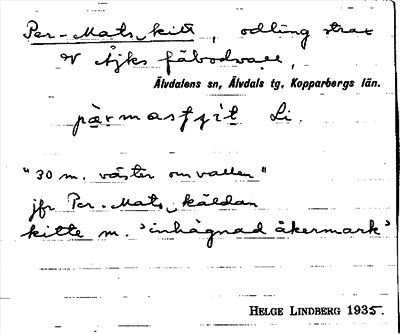 Per-Mats kitt, odling strax
V Åjks fäbodvall,
Älvdalens sn, Älvdals tg, Kopparbergs län.
Li.
"30 m. väster om vallen"
jfr Per-Mats källdan
kitte m. 'inhägnad åkermark'
HELGE LINDBERG 1935.